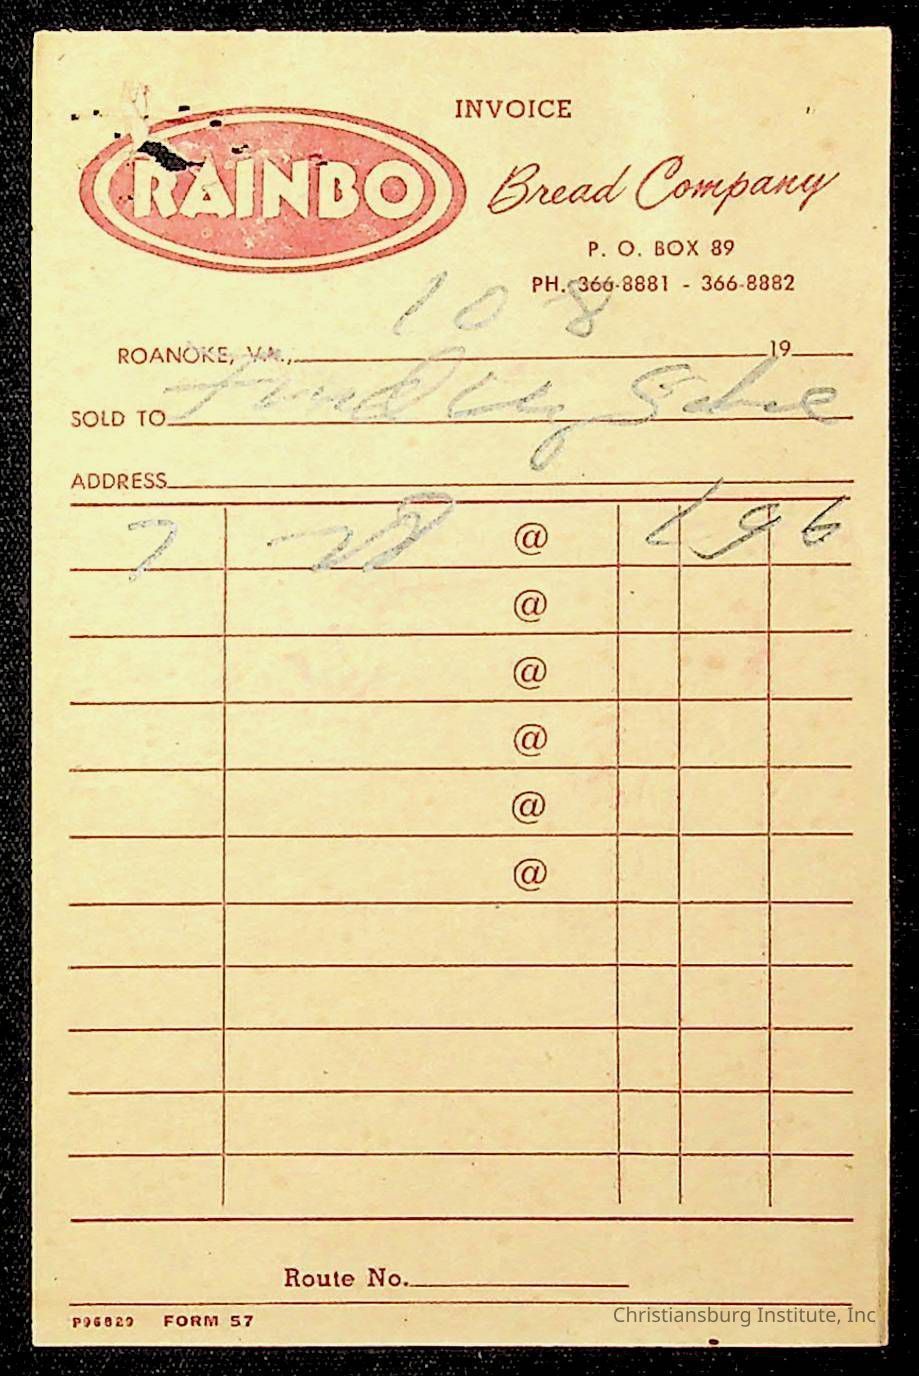 INVOICE
RAINBO
Bread Company
P. O. BOX 89
PH. 366-8881 - 366-8882
10 8
ROANOKE, VA., 19
SOLD TO
ADDRESS
7 28 @ 1 96
@
@
@
@
@
Route No.
P96829 FORM 57
Christiansburg Institute, Inc